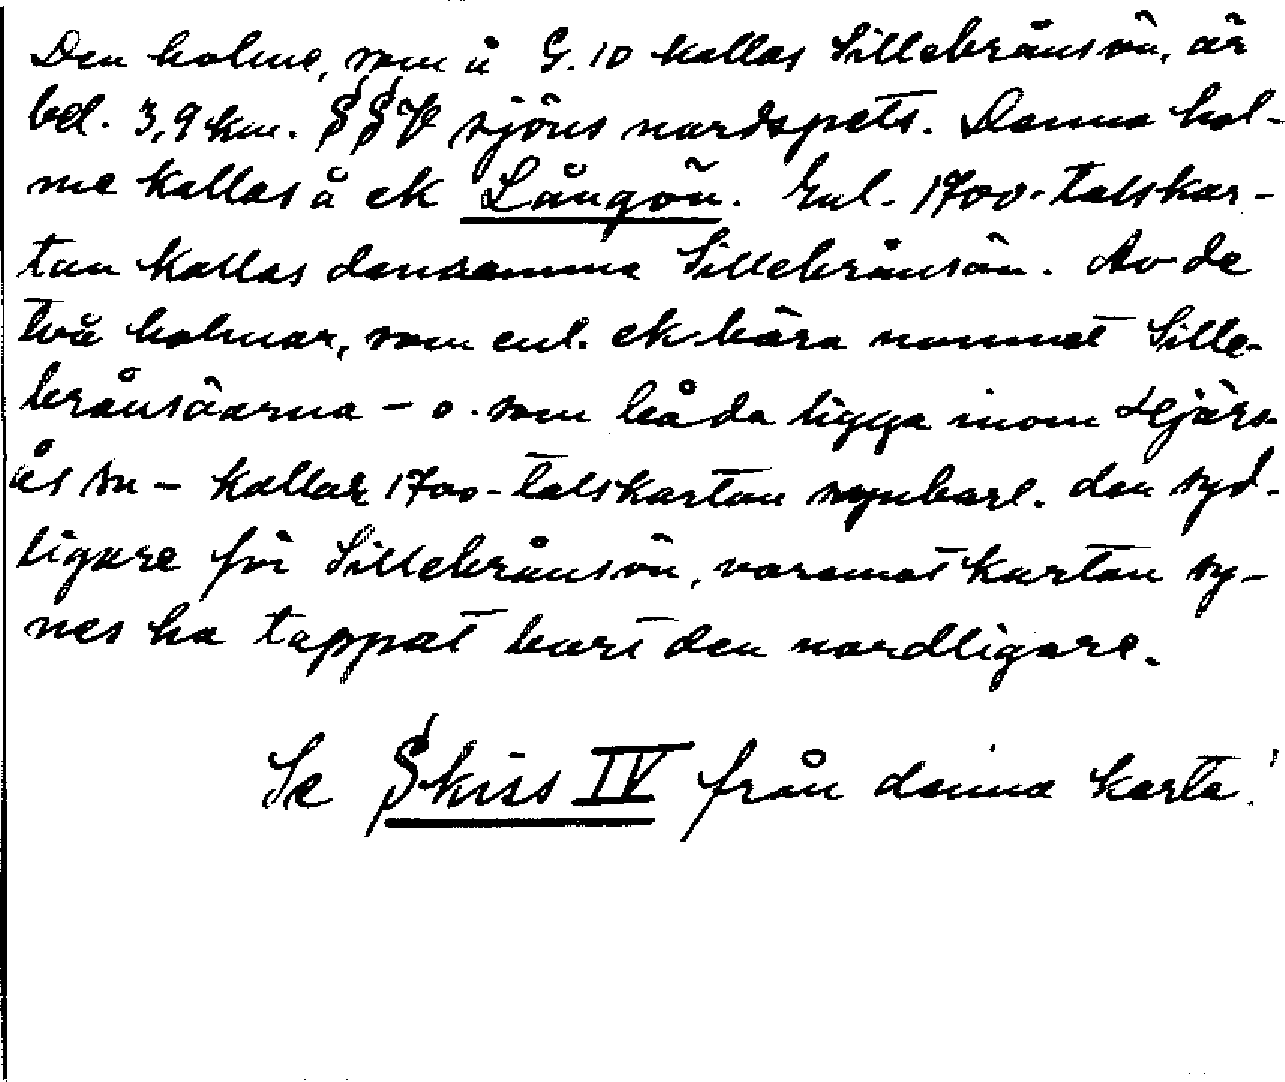 Den holme, som å G. 10 kallas Sillebrånsön, är
bel. 3,9 km. SSV sjöns nordspets. Denna hol-
me kallas å ek Långön. Enl. 1700-talskar-
tan kallas densamma Sillebrånsön. Av de
två holmar, som enl. ek bära namnet Sille-
brånsöarna - o. som båda ligga inom Hjärs-
ås sn - kallar 1700-talskartan synbarl. den syd-
ligare för Sillebrånsön, varemot kartan sy-
nes ha tappat bort den nordligare.
Se Skiss IV från denna karta!